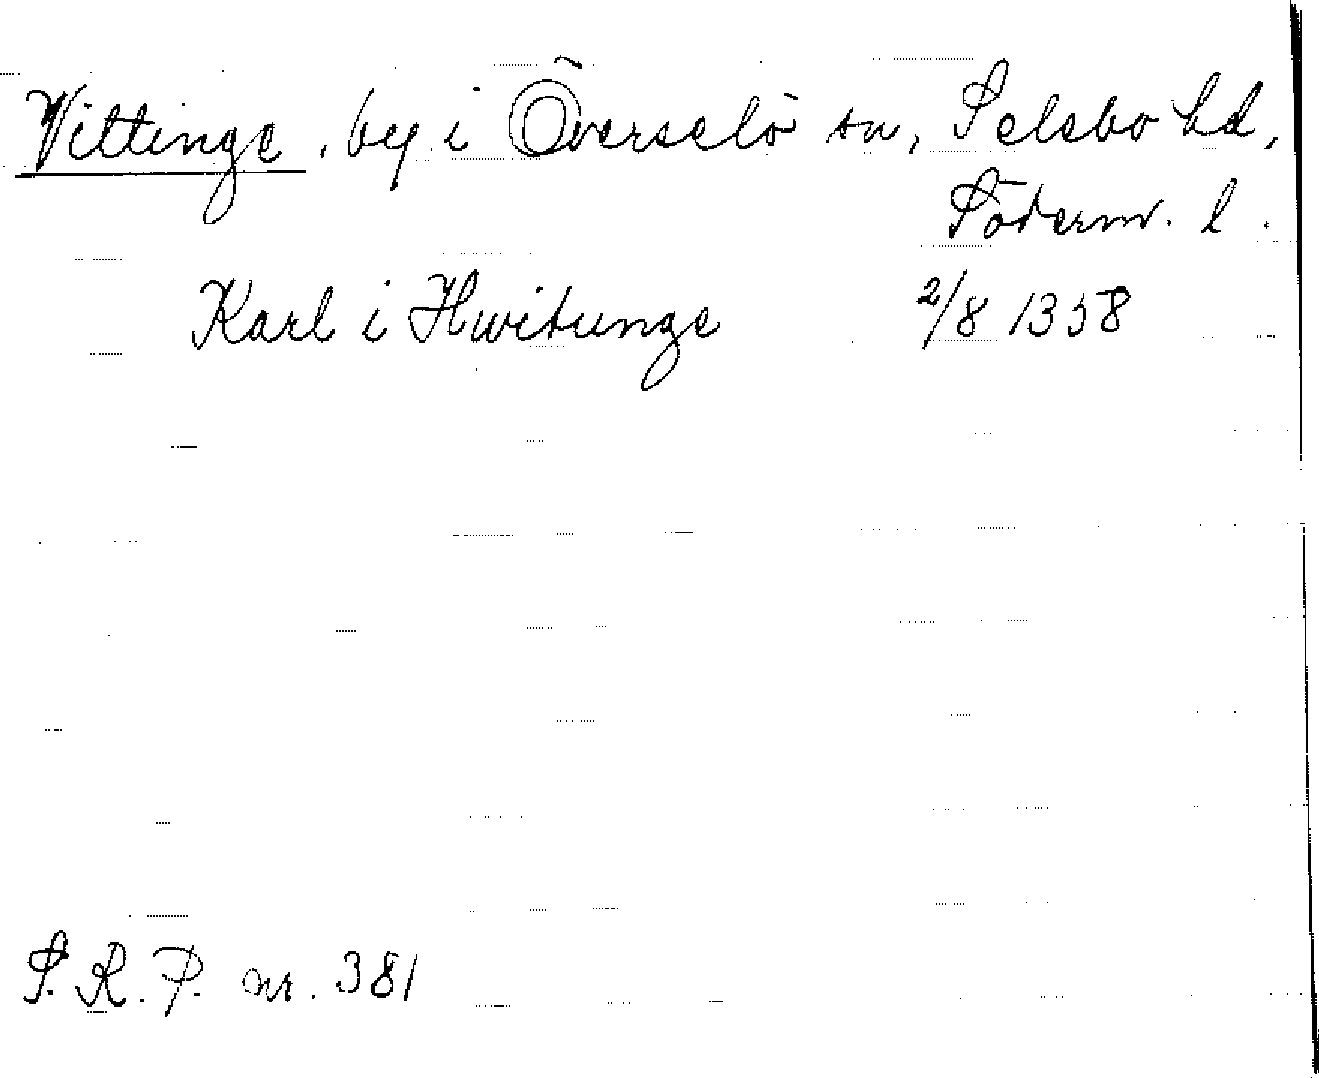 Vittinge, by i Överselö sn, Selebo hd,
Söderm. l.
Karl i Hwitunge 2/8 1358
S.R.P. nr. 381